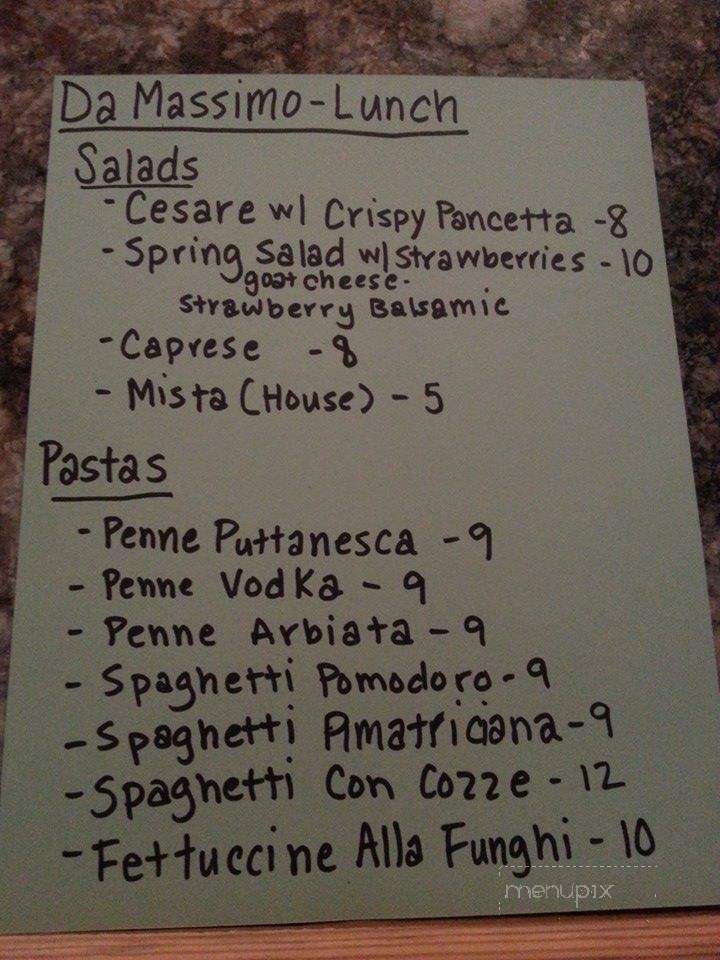 Da Massimo - Lunch
Salads
- Cesare w/ Crispy Pancetta - 8
- Spring Salad w/ Strawberries - 10
goat cheese -
Strawberry Balsamic
- Caprese - 8
- Mista (House) - 5
Pastas
- Penne Puttanesca - 9
- Penne Vodka - 9
- Penne Arbiata - 9
- Spaghetti Pomodoro - 9
- Spaghetti Amatriciana - 9
- Spaghetti Con Cozze - 12
- Fettuccine Alla Funghi - 10
menupix